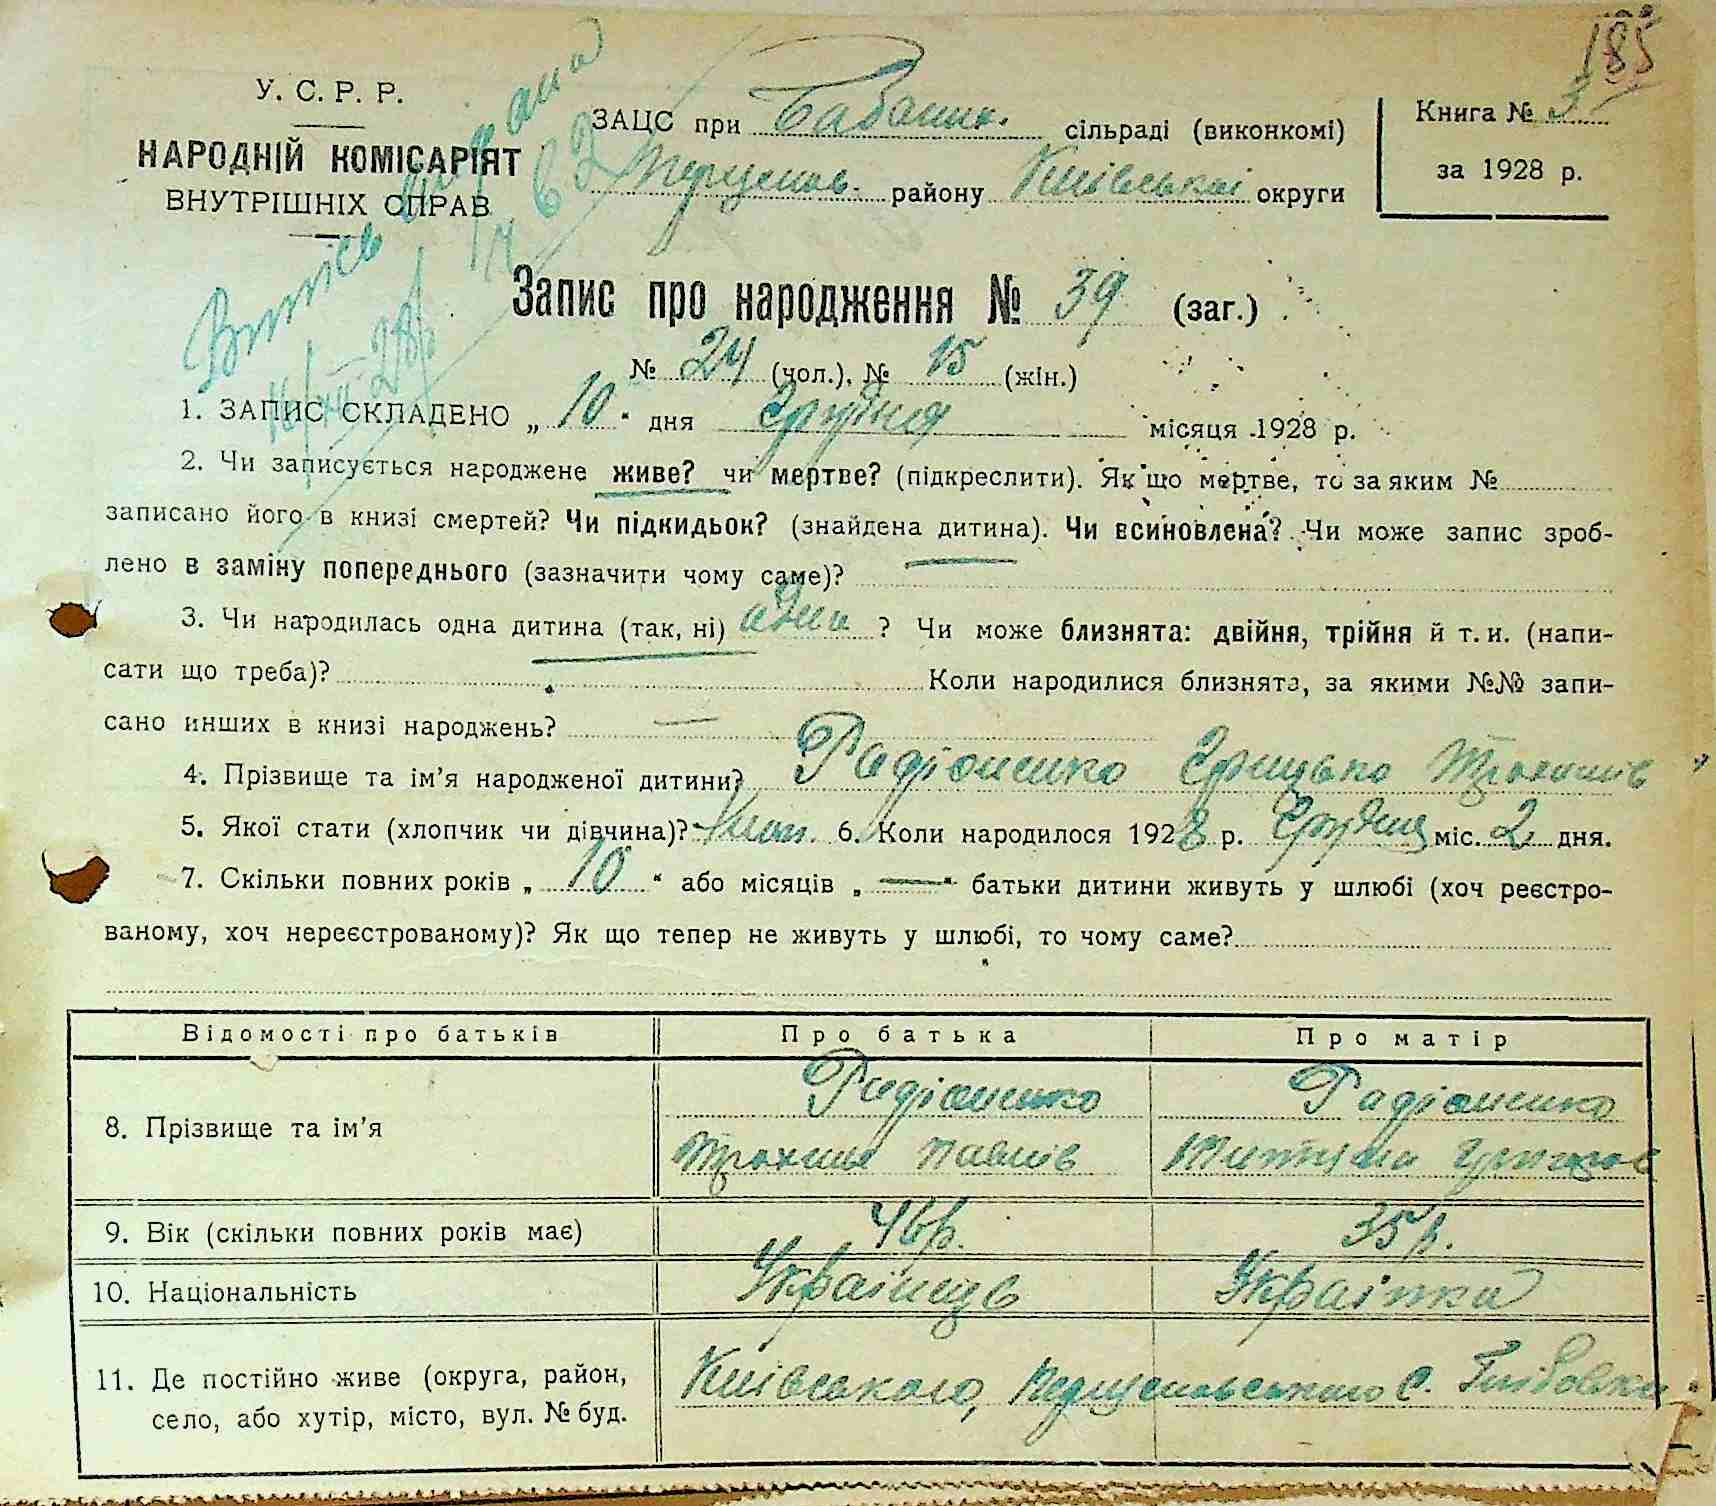 185
У. С. Р. Р.
НАРОДНІЙ КОМІСАРІЯТ
ВНУТРІШНІХ СПРАВ
ЗАЦС при сільраді (виконкомі)
району Київської округи
Книга № 3
за 1928 р.
Випись видана
Запис про народження № 39 (заг.)
№ 24 (чол.), № 15 (жін.)
1. ЗАПИС СКЛАДЕНО „ 10 “ дня Грудня місяця 1928 р.
2. Чи записується народжене живе? чи мертве? (підкреслити). Як що мертве, то за яким №
записано його в книзі смертей? Чи підкидьок? (знайдена дитина). Чи всиновлена? Чи може запис зроб-
лено в заміну попереднього (зазначити чому саме)?
3. Чи народилась одна дитина (так, ні) одна ? Чи може близнята: двійня, трійня й т. и. (напи-
сати що треба)? Коли народилися близнята, за якими №№ запи-
сано инших в книзі народжень? —
4. Прізвище та ім’я народженої дитини? Радіоненко Грицько Трохимів
5. Якої стати (хлопчик чи дівчина)? Хлоп. 6. Коли народилося 1928 р. Грудня міс. 2 дня.
7. Скільки повних років „ 10 “ або місяців „ — “ батьки дитини живуть у шлюбі (хоч реєстро-
ваному, хоч нереєстрованому)? Як що тепер не живуть у шлюбі, то чому саме?
Відомості про батьків Про батька Про матір
8. Прізвище та ім’я Радіоненко Радіоненко
Трохим Павлів
9. Вік (скільки повних років має) 46р. 35р.
10. Національність Українець Українка
11. Де постійно живе (округа, район,
село, або хутір, місто, вул. № буд.
Київського, с.